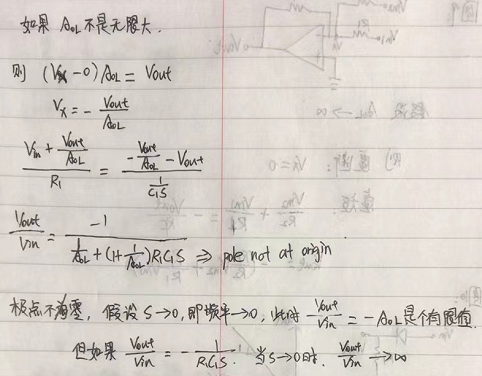 如果 A₀L 不是无限大.
则 (Vx-0)A₀L = Vout
Vx = - Vout/A₀L
(Vin + Vout/A₀L)/R₁ = (-Vout/A₀L - Vout)/(1/(C₁S))
Vout/Vin = -1/(1/A₀L + (1+1/A₀L)R₁C₁S) ⇒ pole not at origin
极点不为零, 假设 S→0, 即频率→0, 此时 Vout/Vin = -A₀L 是个有限值.
但如果 Vout/Vin = - 1/(R₁C₁S). 当S→0时. Vout/Vin →∞